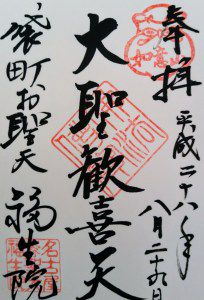 奉拝
平成二十八年
八月二十九日
大聖歓喜天
袋町お聖天
福生院